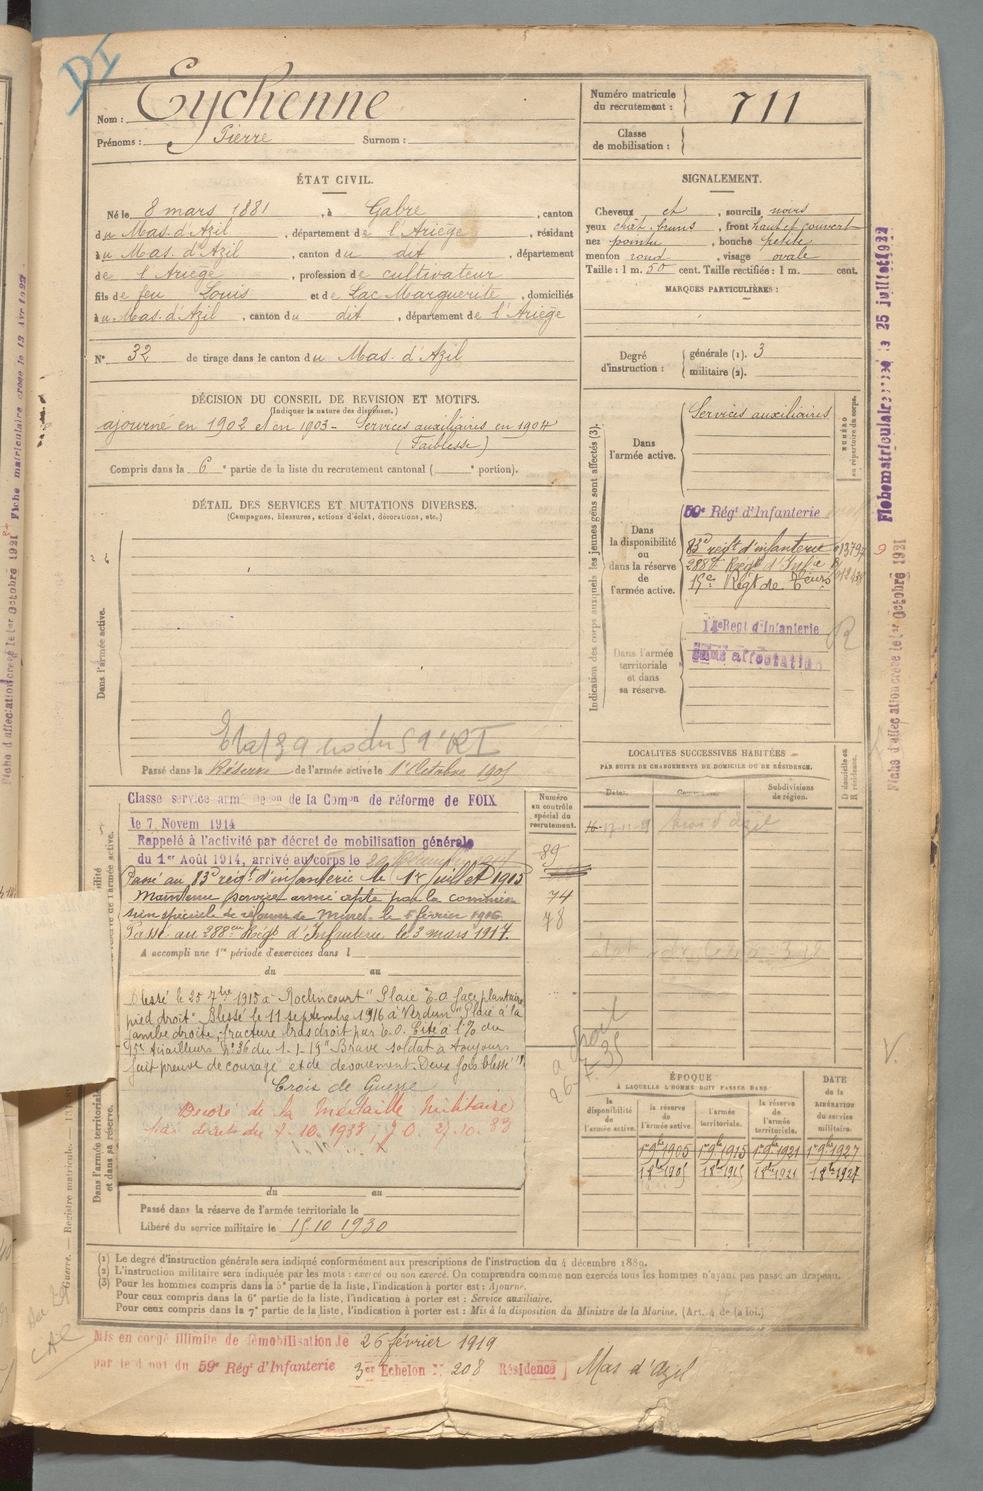 DI
Nom : Eychenne
Prénoms : Pierre Surnom :
Numéro matricule
du recrutement : 711
Classe
de mobilisation :
ÉTAT CIVIL.
Né le 8 mars 1881 , à Gabre , canton
du Mas-d'Azil , département de l'Ariège , résidant
à u Mas. d'Azil , canton du dit , département
de l'Ariège , profession de cultivateur
fils de feu Louis et de Lac Marguerite , domiciliés
à u Mas. d'Azil , canton du dit , département de l'Ariège
N° 32 de tirage dans le canton du Mas. d'Azil
SIGNALEMENT.
Cheveux et , sourcils noirs
yeux chât. bruns , front haut et couvert
nez pointu , bouche petite
menton rond , visage ovale
Taille : 1 m. 50 cent. Taille rectifiée : 1 m. cent.
MARQUES PARTICULIÈRES :
Degré
d'instruction :
générale (1). 3
militaire (2).
DÉCISION DU CONSEIL DE REVISION ET MOTIFS.
(Indiquer la nature des dispenses.)
ajourné en 1902 et en 1903 - Services auxiliaires en 1904
(Faiblesse)
Compris dans la 6e partie de la liste du recrutement cantonal ( e portion).
DÉTAIL DES SERVICES ET MUTATIONS DIVERSES.
(Campagnes, blessures, actions d'éclat, décorations, etc.)
Dans l'armée active.
Passé dans la Réserve de l'armée active le 1er Octobre 1905
Indication des corps auxquels les jeunes gens sont affectés (3).
NUMÉRO
au répertoire du corps.
Dans
l'armée active.
Services auxiliaires
Dans
la disponibilité
ou
dans la réserve
de
l'armée active.
59e Régt d'Infanterie
83e régt d'infanterie
288e Régt d'Infie
15e Régt de Teurs
Dans l'armée
territoriale
et dans
sa réserve.
14e Regt d'Infanterie
affectation
R
LOCALITÉS SUCCESSIVES HABITÉES
PAR SUITE DE CHANGEMENTS DE DOMICILE OU DE RÉSIDENCE.
Dates. Communes. Subdivisions
de région.
D domicile ou
R résidence.
Mas d'Azil
Classe service armé de la Comon de réforme de FOIX
le 7 Novem 1914
Rappelé à l'activité par décret de mobilisation générale
du 1er Août 1914, arrivé au corps le
Passé au 83e régt d'infanterie le 1er juillet 1915
Maintenu service armé apte par la commis-
sion spéciale de réforme de Muret le 5 février 1916
Passé au 288me Régt d'Infanterie le 3 mars 1917.
A accompli une 1re période d'exercices dans l
du au
Blessé le 25 7bre 1915 à Roclincourt "Plaie E.O. face plantaire
pied droit" Blessé le 11 septembre 1916 à Verdun "Plaie à la
jambe droite, fracture bras droit par E.O. Cité à l'O. du
15e tirailleurs N° 36 du 1-1-19 "Brave soldat a toujours
fait preuve de courage et de dévouement. Deux fois blessé".
Croix de Guerre
Décoré de la Médaille Militaire
du au
Passé dans la réserve de l'armée territoriale le
Libéré du service militaire le 15 10 1930
Numéro
au contrôle
spécial du
recrutement.
89
74
78
ÉPOQUE
À LAQUELLE L'HOMME DOIT PASSER DANS
la
disponibilité
de
l'armée active.
la réserve
de
l'armée active.
l'armée
territoriale.
la réserve
de
l'armée
territoriale.
DATE
de la
LIBÉRATION
du service
militaire.
1er 9bre 1905 1er 9bre 1915 1er 9bre 1921 1er 9bre 1927
1er 8bre 1905 1er 8bre 1915 1er 8bre 1921 1er 8bre 1927
V.
(1) Le degré d'instruction générale sera indiqué conformément aux prescriptions de l'instruction du 4 décembre 1889.
(2) L'instruction militaire sera indiquée par les mots : exercé ou non exercé. On comprendra comme non exercés tous les hommes n'ayant pas passé au drapeau.
(3) Pour les hommes compris dans la 5e partie de la liste, l'indication à porter est : Ajourné.
Pour ceux compris dans la 6e partie de la liste, l'indication à porter est : Service auxiliaire.
Pour ceux compris dans la 7e partie de la liste, l'indication à porter est : Mis à la disposition du Ministre de la Marine. (Art. 4 de la loi.)
Mis en congé illimité de démobilisation le 26 février 1919
par le dépot du 59e Régt d'Infanterie 3er Echelon N° 208 Résidence Mas d'Azil
Dans l'armée territoriale
et dans sa réserve.
Guerre. — Registre matricule.
Fiche matriculaire 25 juillet 1922
Fiche d'affectation créée le 1er Octobre 1921